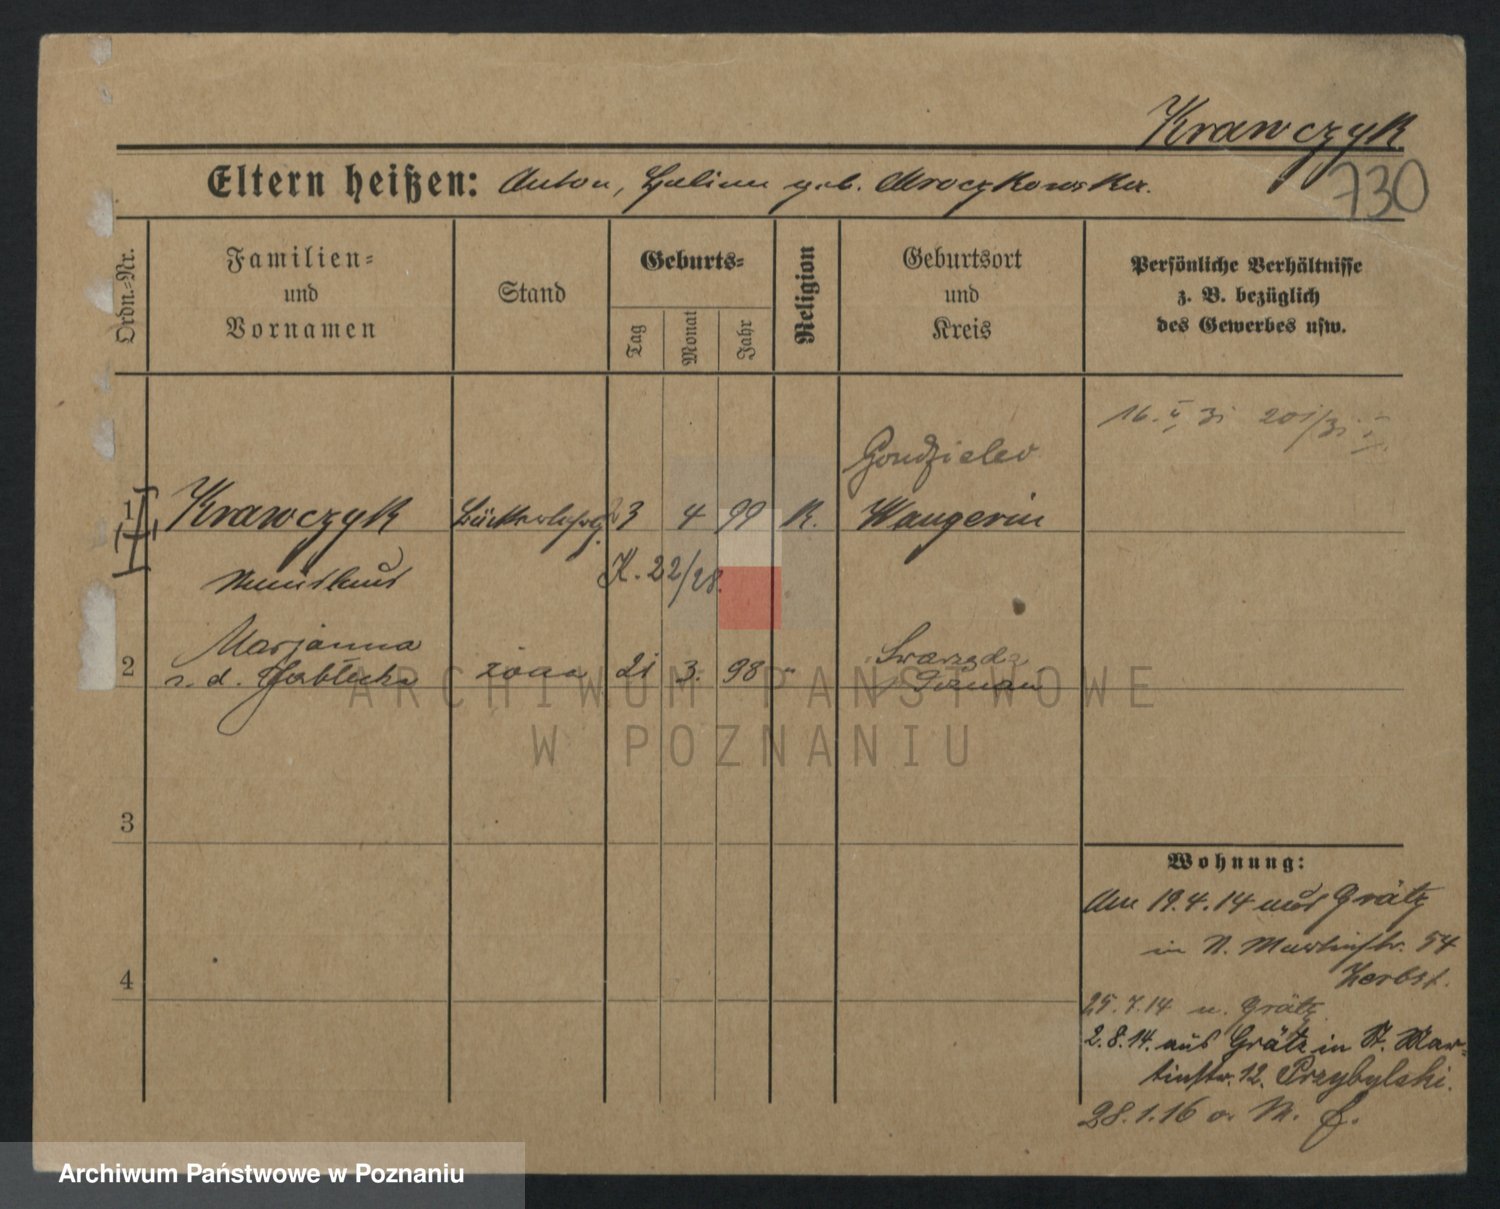 Krawczyk
730
Eltern heißen: Anton, Halina geb. Mroczkowska.
Ordn.-Nr.
Familien- und Vornamen
Stand
Geburts-
Tag
Monat
Jahr
Religion
Geburtsort und Kreis
Persönliche Verhältnisse z. B. bezüglich des Gewerbes usw.
16. 31 201/31
1 Krawczyk 3 4 99 K. Wangerin
K. 22/28.
Marjanna
2 z. d. żona 21 3. 98 "
Swarzędz
Poznań
ARCHIWUM PAŃSTWOWE
W POZNANIU
3
4
Wohnung:
Am 19.4.14 aus Grätz
in St. Martinstr. 54
Herbst.
25.7.14 n. Grätz.
2.8.14. aus Grätz in St. Mar-
tinstr. 12. Przybylski.
28.1.16
Archiwum Państwowe w Poznaniu